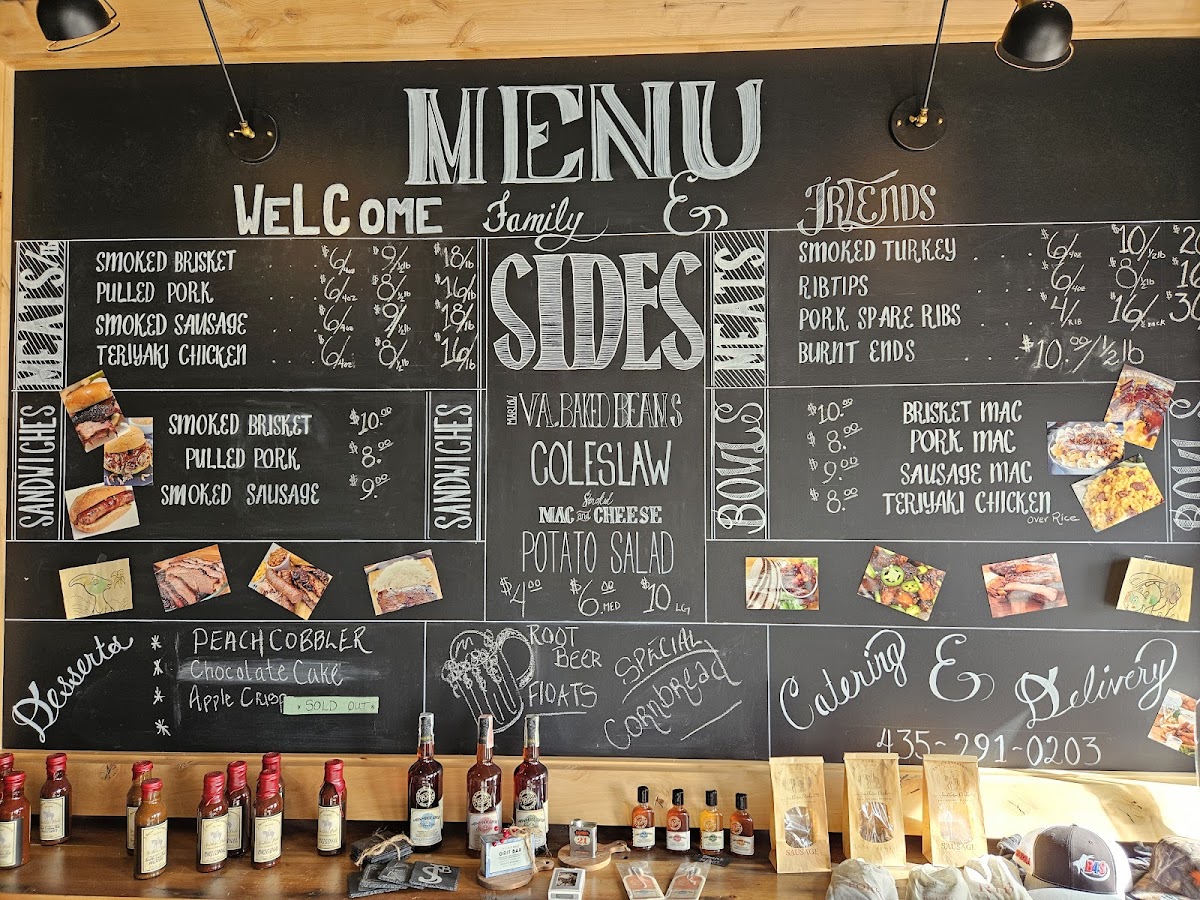 MENU
WELCOME Family & FRIENDS
MEATS
SMOKED BRISKET . . . $6/4oz $9/½lb $18/lb
PULLED PORK . . . $6/4oz $8/½lb $16/lb
SMOKED SAUSAGE . . . $6/4oz $9/½lb $18/lb
TERIYAKI CHICKEN . . . $6/4oz $8/½lb $16/lb
SANDWICHES
SMOKED BRISKET $10.00
PULLED PORK $8.00
SMOKED SAUSAGE $9.00
SANDWICHES
SIDES
VA. BAKED BEANS
COLESLAW
Smoked
MAC and CHEESE
POTATO SALAD
$4.00 $6.00 MED $10 LG
MEATS
SMOKED TURKEY . . . $6/4oz $10/½lb
RIBTIPS . . . $6/4oz $8/½lb
PORK SPARE RIBS . . . $4/RIB $16/½ back
BURNT ENDS . . . $10.00/½lb
BOWLS
$10.00 BRISKET MAC
$8.00 PORK MAC
$9.00 SAUSAGE MAC
$8.00 TERIYAKI CHICKEN
over Rice
BOWLS
Desserts
* PEACH COBBLER
* Chocolate Cake
* Apple Crisp * SOLD OUT *
*
ROOT
BEER
FLOATS
SPECIAL
CORNBREAD
Catering & Delivery
435-291-0203
SAUSAGE